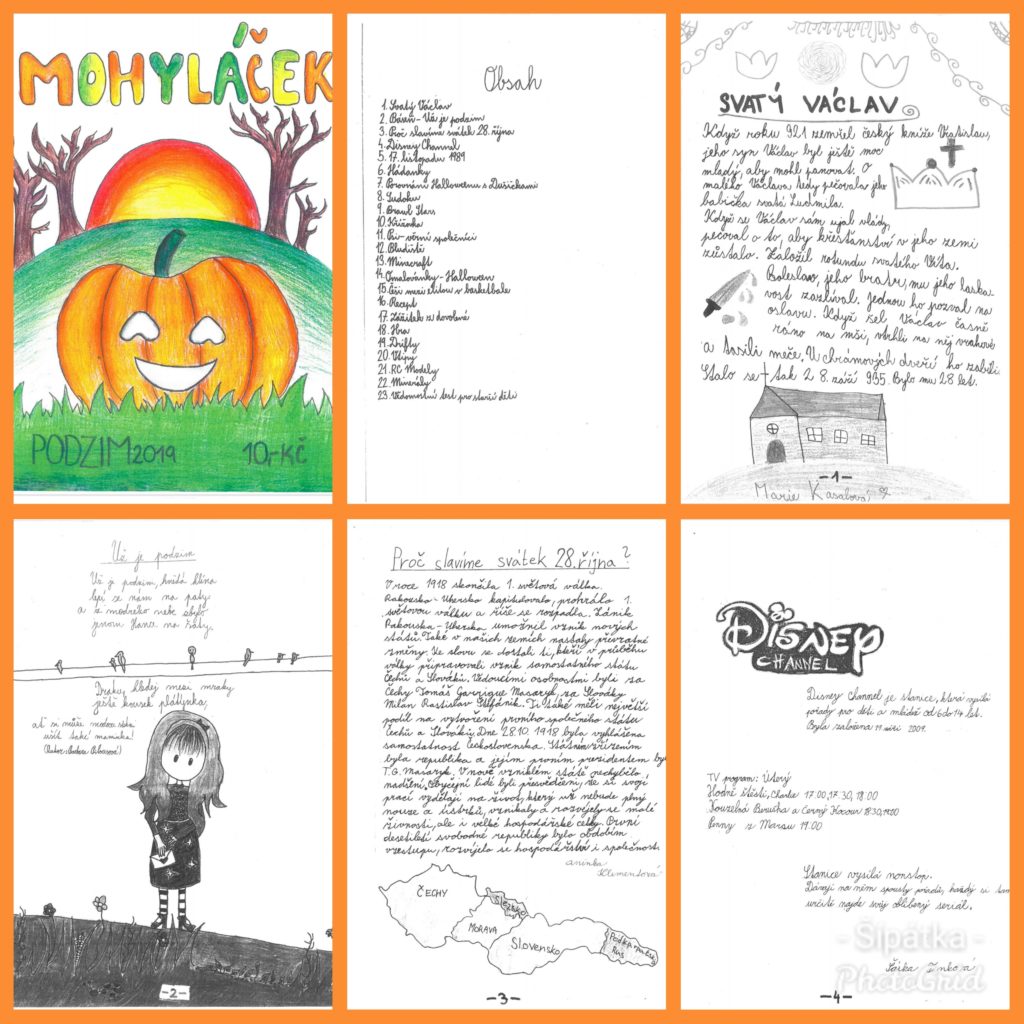 MOHYLÁČEK
PODZIM 2019 10,-Kč
Obsah
1. Svatý Václav
2. Báseň - Už je podzim
3. Proč slavíme svátek 28. října
4. Disney Channel
5. 17. listopadu 1989
6. Hádanky
7. Porovnání Hallowenu s Dušičkami
8. Sudoku
9. Brawl Stars
10. Křížovka
11. Psi - věrní společníci
12. Bludiště
13. Minecraft
14. Omalovánky - Hallowen
15. Češi mezi elitou v basketbale
16. Recept
17. Zážitek z dovolené
18. Hra
19. Drifty
20. Vtipy
21. RC Modely
22. Minerály
23. Vědomostní test pro starší děti
SVATÝ VÁCLAV
Když roku 921 zemřel český kníže Vratislav,
jeho syn Václav byl ještě moc
mladý, aby mohl panovat. O
malého Václava tedy pečovala jeho
babička svatá Ludmila.
Když se Václav sám ujal vlády,
pečoval o to, aby křesťanství v jeho zemi
zůstalo. Založil rotundu svatého Víta.
Boleslav, jeho bratr, mu jeho laska
vost zazlíval. Jednou ho pozval na
oslavu. Když šel Václav časně
ráno na mši, vtrhli na něj vrahové
a tasili meče. U chrámových dveří ho zabili.
Stalo se tak 28. září 935. Bylo mu 28 let.
-1-
Marie Kasalová
Už je podzim
Už je podzim, hnědá hlína
lepí se nám na paty
a z modrého nebe zbylo
jenom Hance na šaty.
Draku, hledej mezi mraky
ještě kousek plátýnka,
ať si může modrou sukni
ušít také maminka!
-2-
Proč slavíme svátek 28. října?
V roce 1918 skončila 1. světová válka.
Rakousko-Uhersko kapitulovalo, prohrálo 1.
světovou válku a říše se rozpadla. Zánik
Rakouska-Uherska umožnil vznik nových
států. Také v našich zemích nastaly převratné
změny. Ke slovu se dostali ti, kteří v průběhu
války připravovali vznik samostatného státu
Čechů a Slováků. Vedoucími osobnostmi byli za
Čechy Tomáš Garrigue Masaryk, za Slováky
Milan Rastislav Štefánik. Ti také měli největší
podíl na vytvoření prvního společného státu
Čechů a Slováků. Dne 28.10. 1918 byla vyhlášena
samostatnost Československa. Státním zřízením
byla republika a jejím prvním prezidentem byl
T.G. Masaryk. V nově vzniklém státě nechybělo
nadšení. Obyčejní lidé byli přesvědčeni, že si svojí
prací vydělají na život, který už nebude plný
nouze a ústrků, vznikaly a rozvíjely se malé
živnosti, ale i velké hospodářské celky. První
desetiletí svobodné republiky bylo obdobím
vzestupu, rozvíjelo se hospodářství i společnost.
Aninka
Klementová
ČECHY
Slezsko
MORAVA
Slovensko
Podkarpatská
Rus
-3-
Disney
CHANNEL
Disney Channel je stanice, která vysílá
pořady pro děti a mládež od 6 do 14 let.
Byla založena 19. září 2009.
TV program: Úterý
Hodně štěstí, Charlie 17.00, 17.30, 18.00
Kouzelná Beruška a Černý Kocour 18.30, 19.00
Penny z Marsu 19.00
Stanice vysílá nonstop.
Dávají na něm spousty pořadů, každý si tam
určitě najde svůj oblíbený seriál.
-4-
- Šipátka -
PhotoGrid